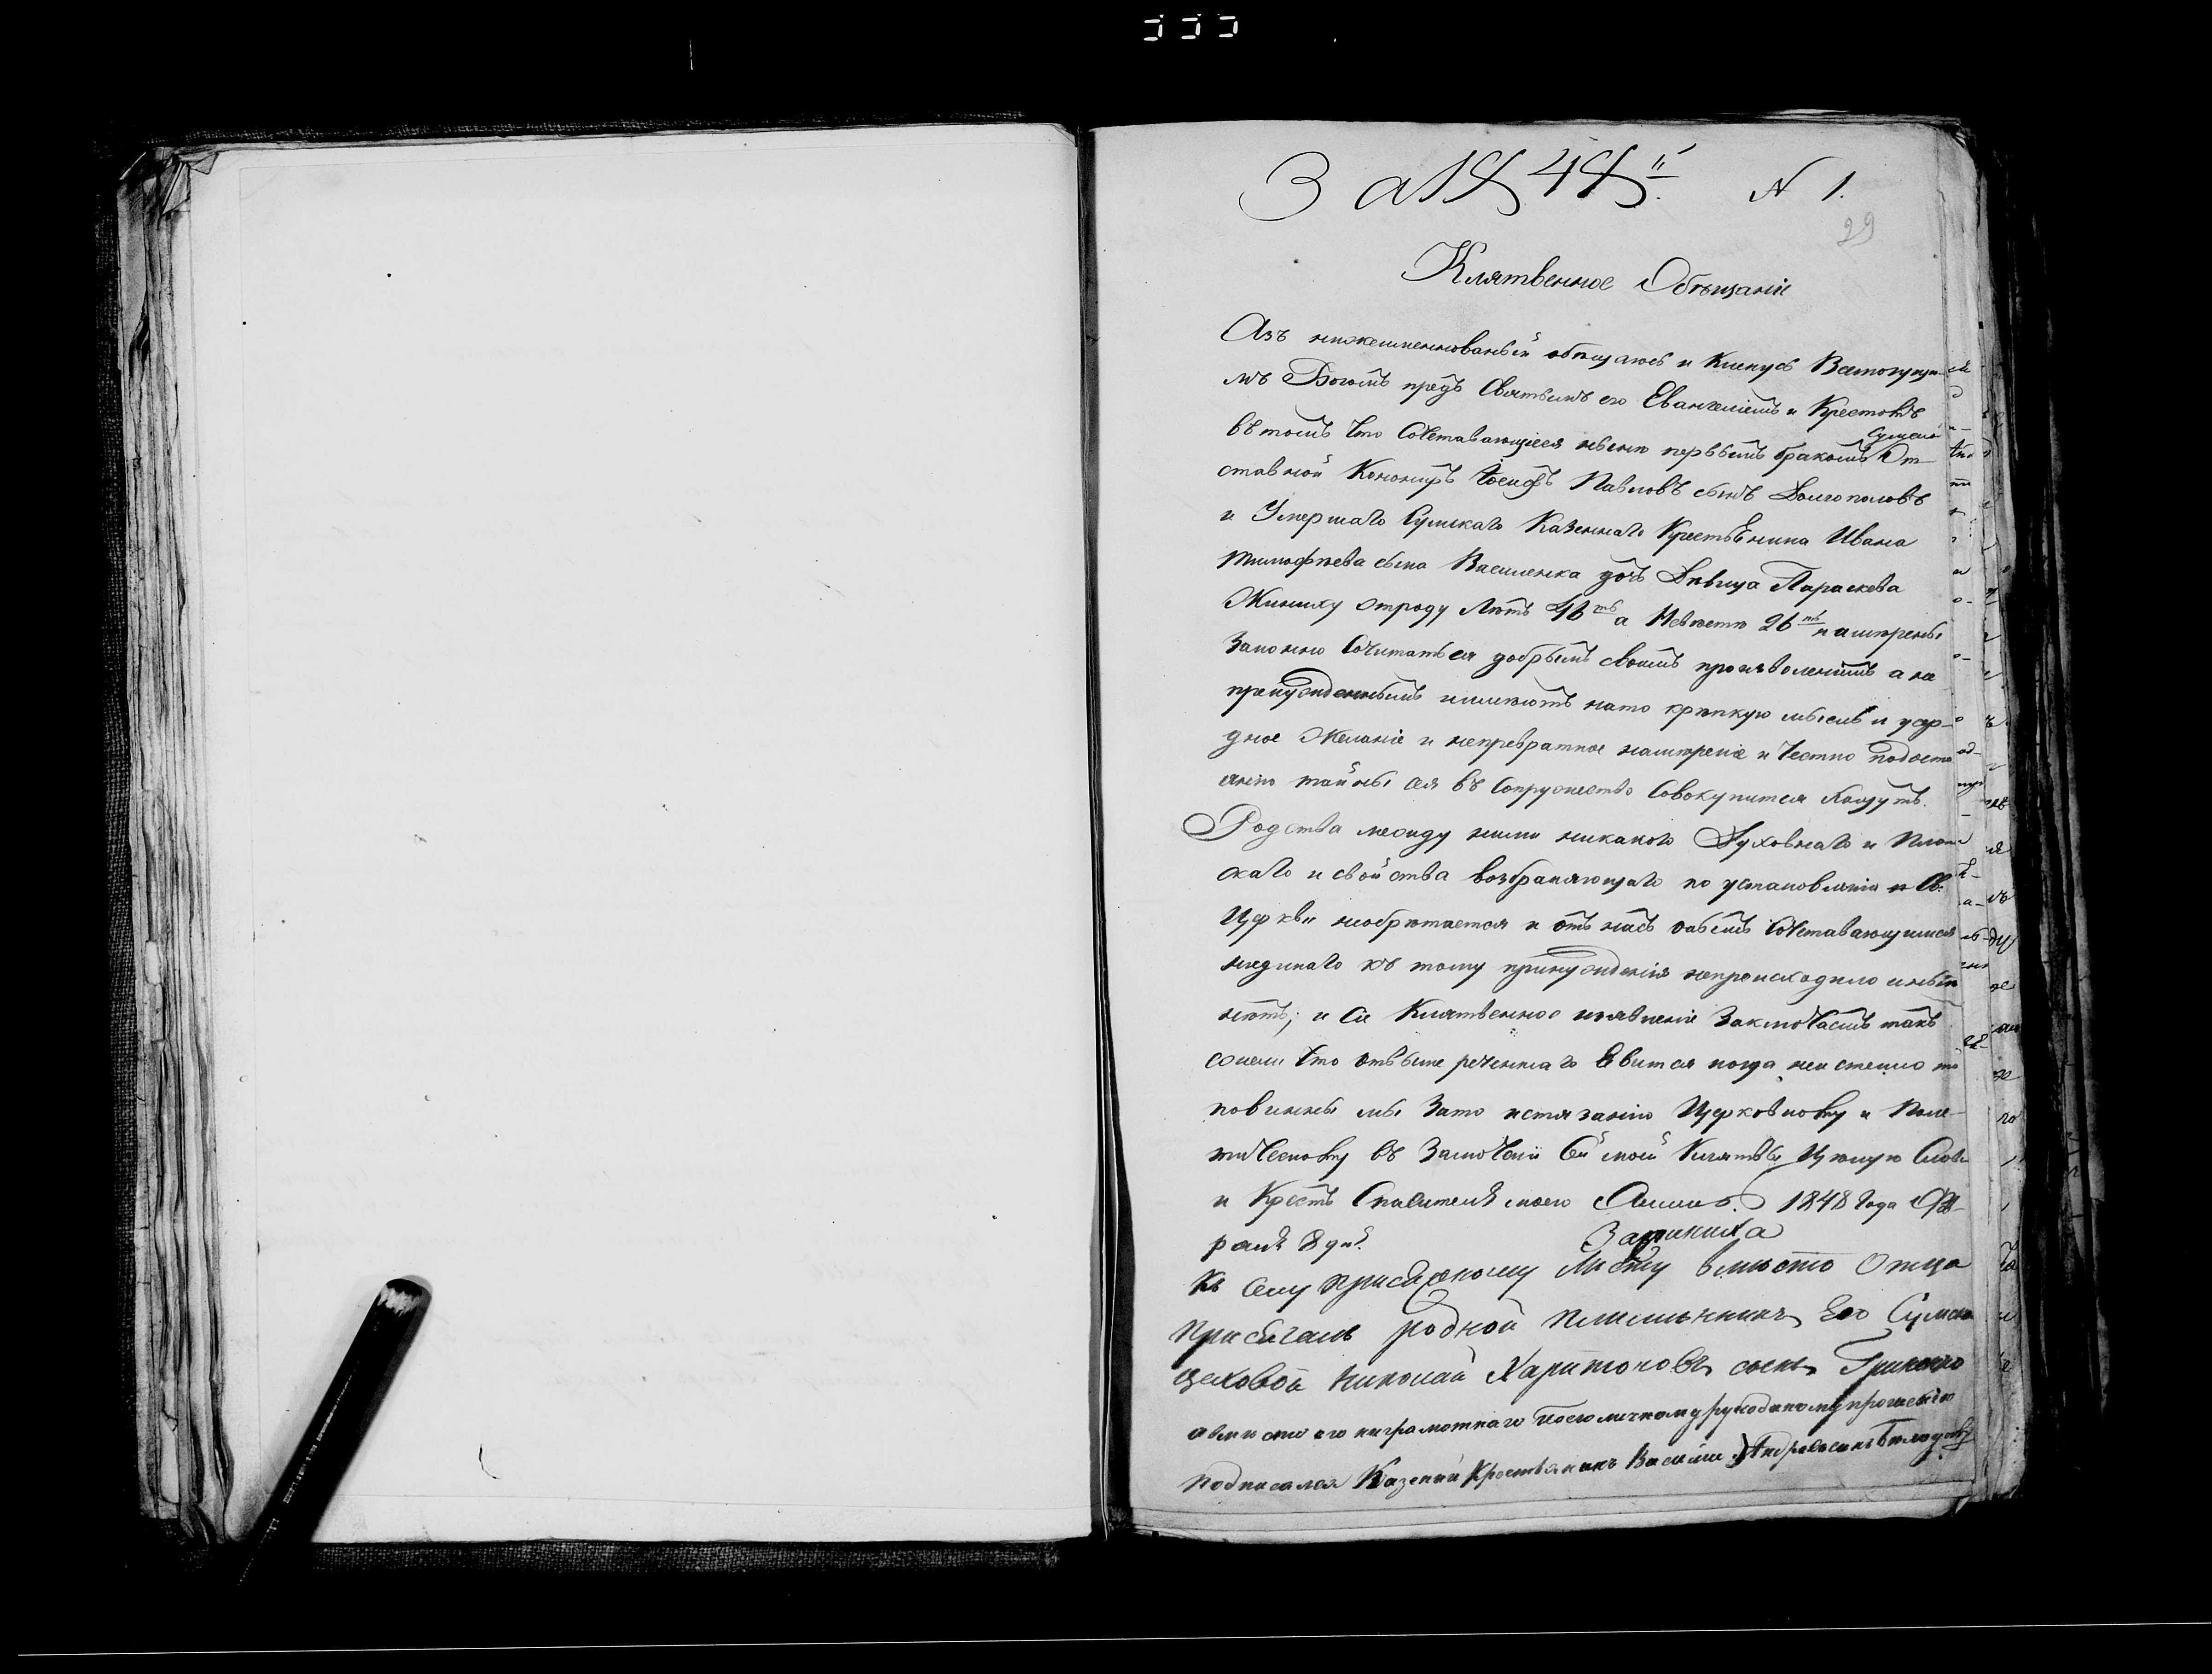 За 1848й. N 1.
29
Клятвенное Обѣщаніе
Азъ нижеименнованный обѣщаюсь и Кленусь Всемогущи
мъ Богомъ предъ Святымъ его Евангеліемъ и Крестомъ
Сумскій
вътомъ Что Сочетавающіеся ныне первымъ бракомъ От
ставной Канониръ Іосифъ Павловъ сынъ Долгополовъ
и Умершаго Сумскаго Казеннаго КрестьЕнина Ивана
Тимофѣева сына Василенка дочь Дѣвица Параскева
Жениху отроду Лѣтъ а Невѣсте 26ть намѣрены
Законно Сочитаться добрымъ своимъ произволеніемъ а не
принужденнымъ имѣютъ нато крѣпкую мысль и усер
дное Желаніе и непревратное намѣреніе и Честно подосто
янію тайны сея въ Сопружество Совокупится Хощутъ.
Родства между ними никакого Духовнаго и Плот
скаго и свойства возбраняющаго по установленію Св.
Церкви необрѣтается и отъ насъ Сочетавающимся
ниединаго къ тому принужденія непроисходило иныне
нѣтъ; и Сіе Клятвенное изявленіе Заключаемъ такъ
сонеми Что отвыше реченнаго Евится когда неистенно то
повинны мы Зато истязанію Церковному и Поли
тическому въ Заключеніи Сей моей Клятвы Цѣлую Слова
и Крестъ Спасителя моего Аминь. 1848 Года Фев
раля 8 дня.
Зажениха
Къ Сему присяжному Листу вместо Отца
присягалъ родной племенникъ Его Сумской
Цеховой Николай Харитоновъ сынъ Гриненко
авместо его неграмотнаго поеголичномурукоданомупрошенію
подписался Казеный Крестьянинъ Василий Андреевъсынъ